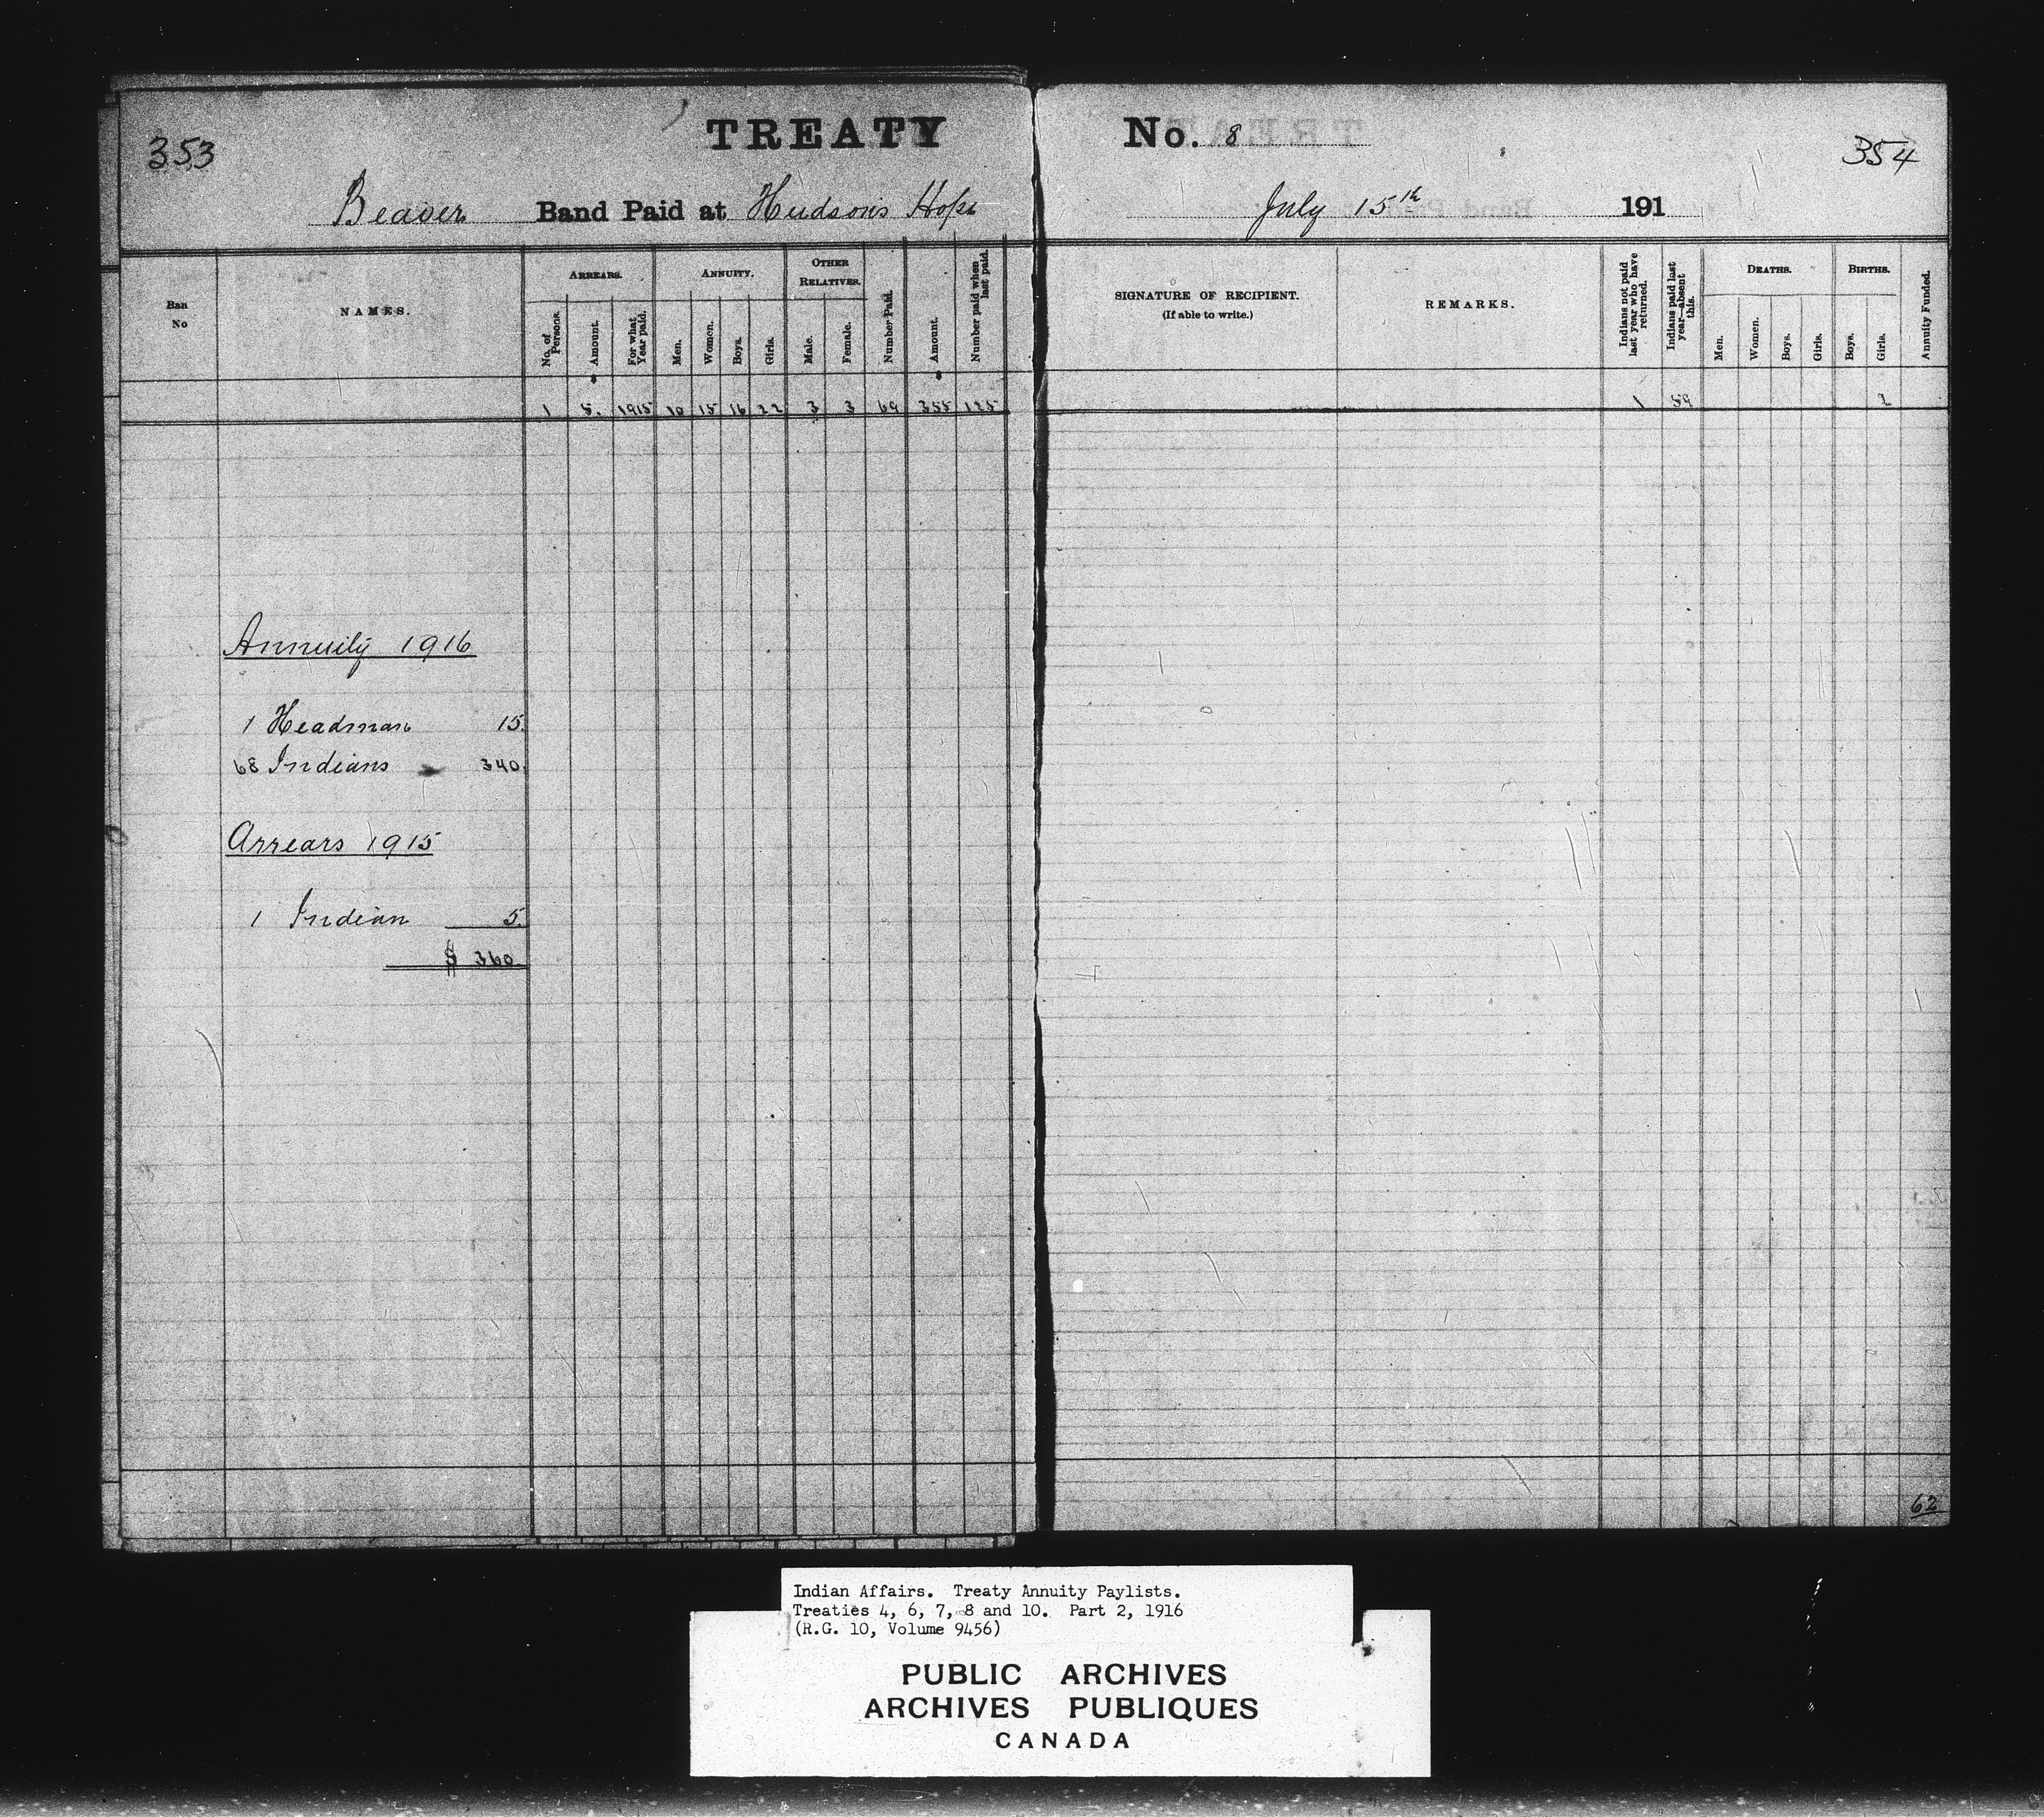 353
TREATY No. 8
354
Beaver Band Paid at Hudsons Hope July 15th 191
Ban No
NAMES.
ARREARS.
No. of Persons.
Amount.
For what Year paid.
ANNUITY.
Men.
Women.
Boys.
Girls.
OTHER RELATIVES.
Male.
Female.
Number Paid.
Amount.
Number paid when last paid.
SIGNATURE OF RECIPIENT.
(If able to write.)
REMARKS.
Indians not paid last year who have returned.
Indians paid last year—absent this.
DEATHS.
Men.
Women.
Boys.
Girls.
BIRTHS.
Boys.
Girls.
Annuity Funded.
1 5. 1915 10 15 16 22 3 3 69 355 125 1 59 2
Annuity 1916
1 Headman 15.
68 Indians 340.
Arrears 1915
1 Indian 5.
$ 360.
62
Indian Affairs. Treaty Annuity Paylists.
Treaties 4, 6, 7, 8 and 10. Part 2, 1916
(R.G. 10, Volume 9456)
PUBLIC ARCHIVES
ARCHIVES PUBLIQUES
CANADA